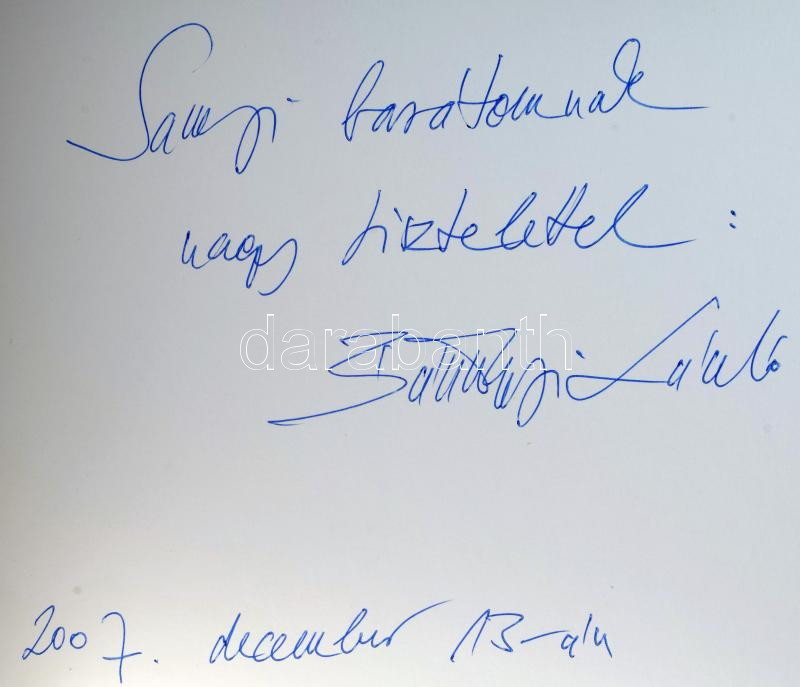 Samyi barátomnak
nagy tisztelettel :
darabanth
László
2007. december 13-án